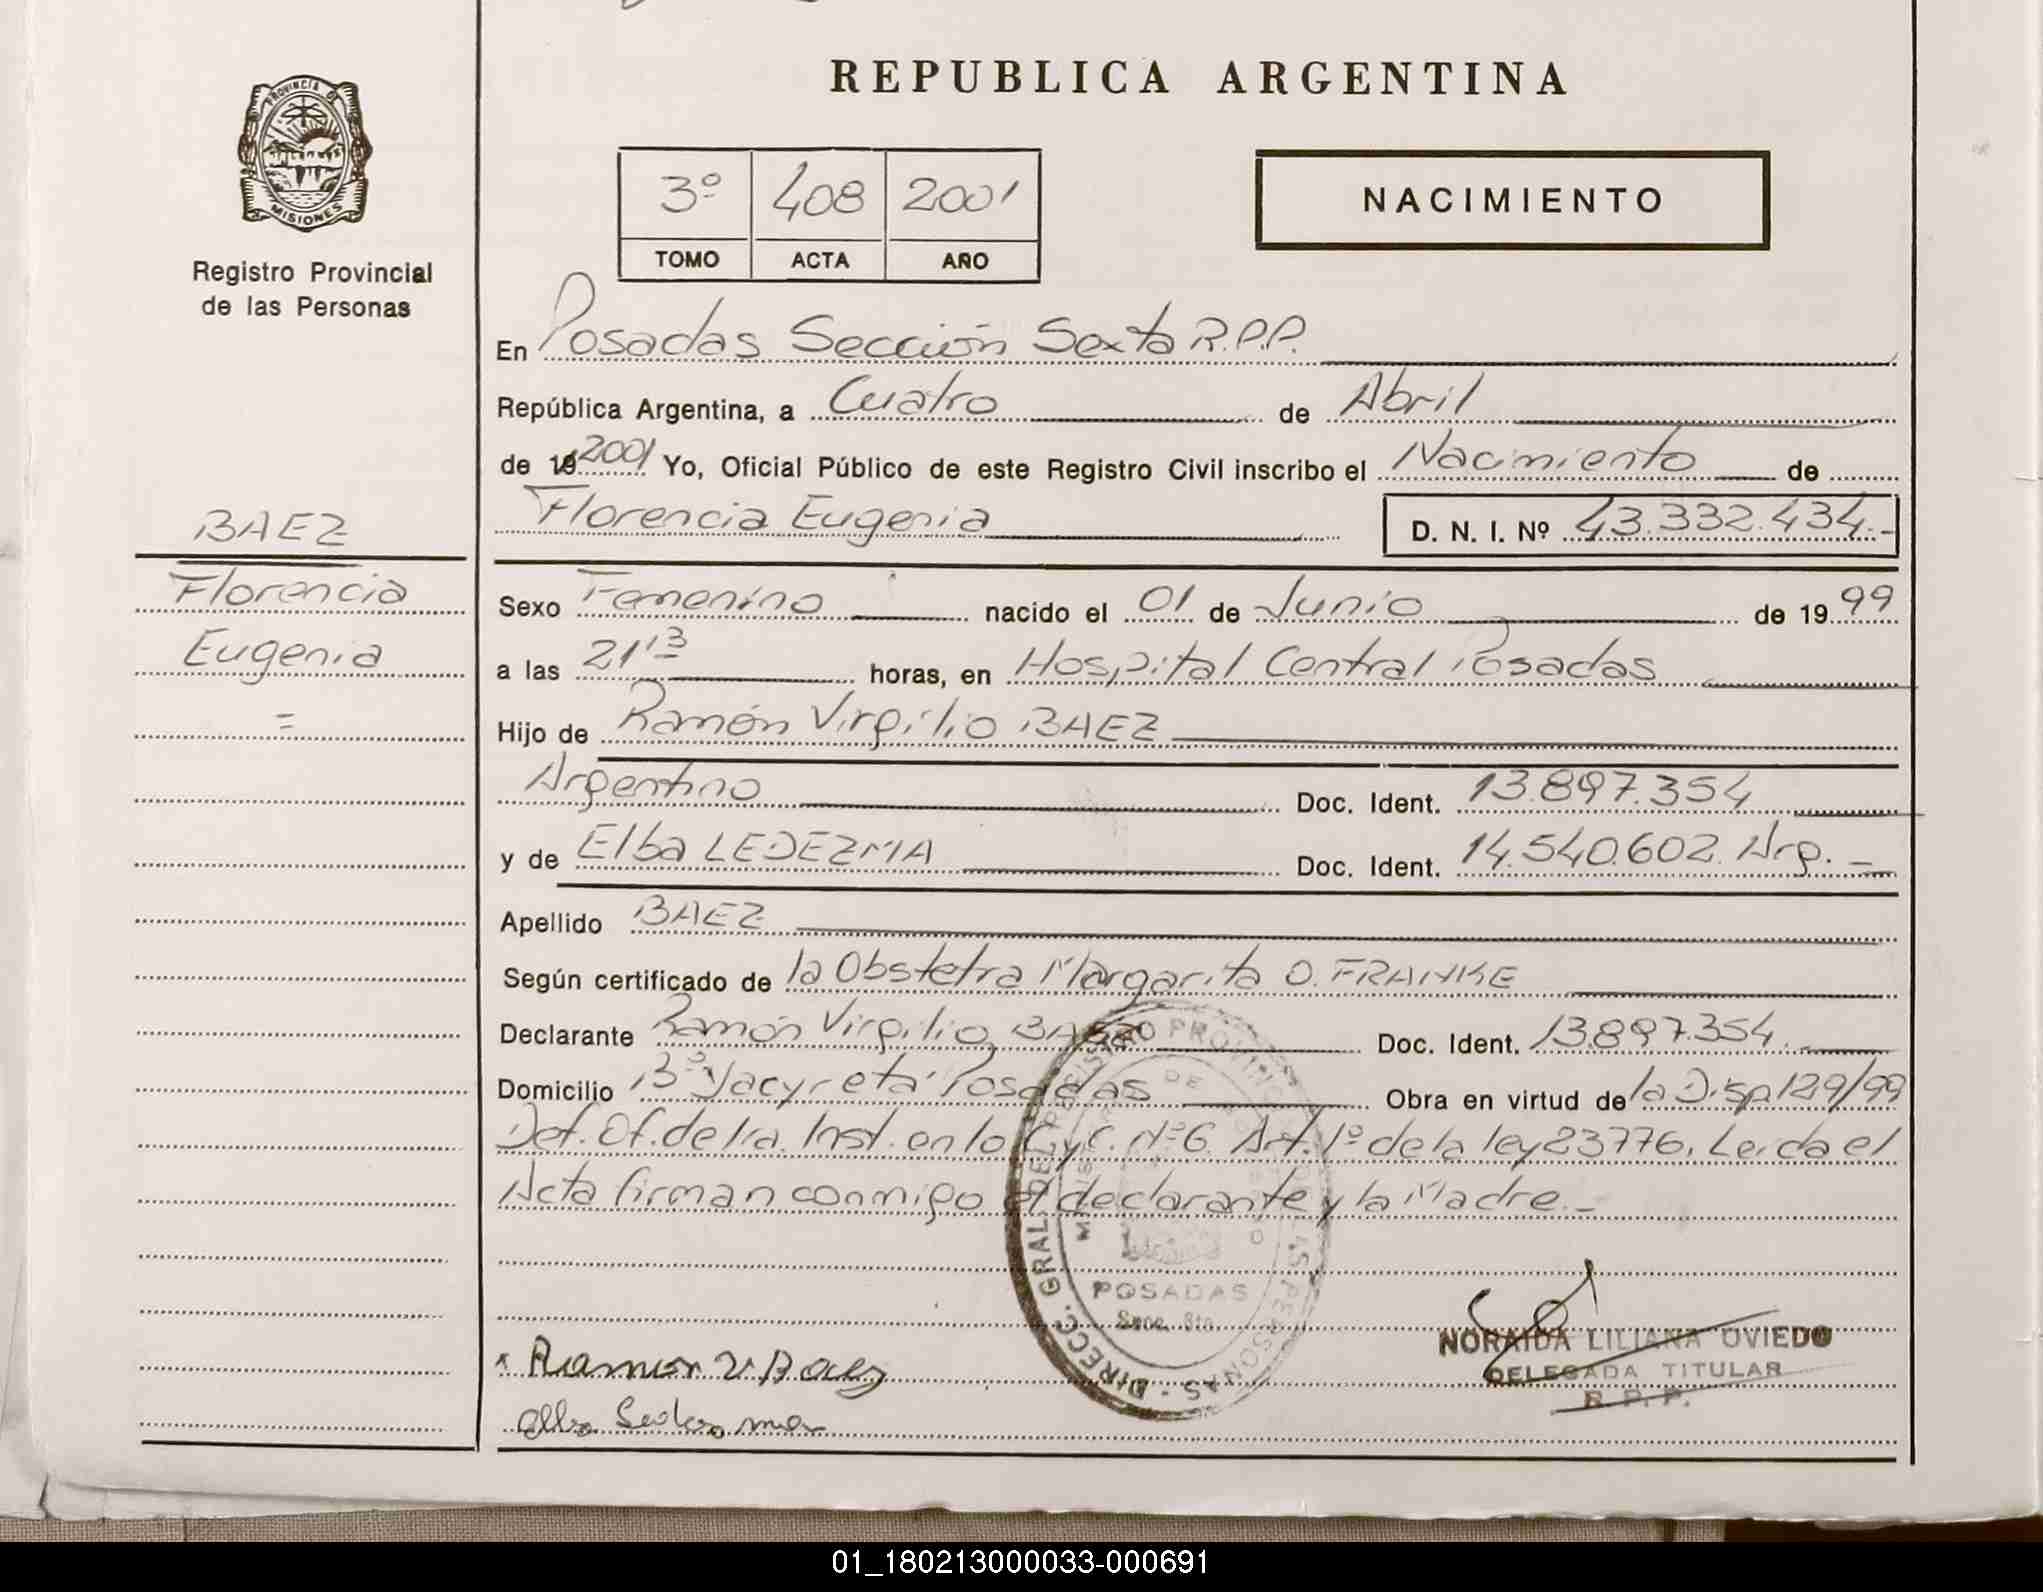 REPUBLICA ARGENTINA
PROVINCIA DE
MISIONES
Registro Provincial
de las Personas
3º 408 2001
TOMO ACTA AÑO
NACIMIENTO
En Posadas Sección Sexta R.P.P.
República Argentina, a Cuatro de Abril
de 19 2001 Yo, Oficial Público de este Registro Civil inscribo el Nacimiento de
Florencia Eugenia D. N. I. Nº 43.332.434.-
BAEZ
Florencia
Eugenia
=
Sexo Femenino nacido el 01 de Junio de 19 99
a las 21'13 horas, en Hospital Central Posadas
Hijo de Ramón Virgilio BAEZ
Argentino Doc. Ident. 13.897.354
y de Elba LEDEZMA Doc. Ident. 14.540.602. Arg. -
Apellido BAEZ
Según certificado de la Obstetra Margarita O. FRANKE
Declarante Ramón Virgilio BAEZ Doc. Ident. 13.897.354.
Domicilio Bº Yacyretá Posadas Obra en virtud de la Disp 129/99
Def. Of. de 1ra. Inst. en lo C y C. Nº 6 Art. 1º de la ley 23776. Leída el
Acta firman conmigo el declarante y la Madre.-
DIRECC. GRAL. DEL REGISTRO PROVINC DE LAS PERSONAS
POSADAS
Secc. 6ta.
Ramon V Baez
NORAIDA LILIANA OVIEDO
DELEGADA TITULAR
R. P. P.
01_180213000033-000691